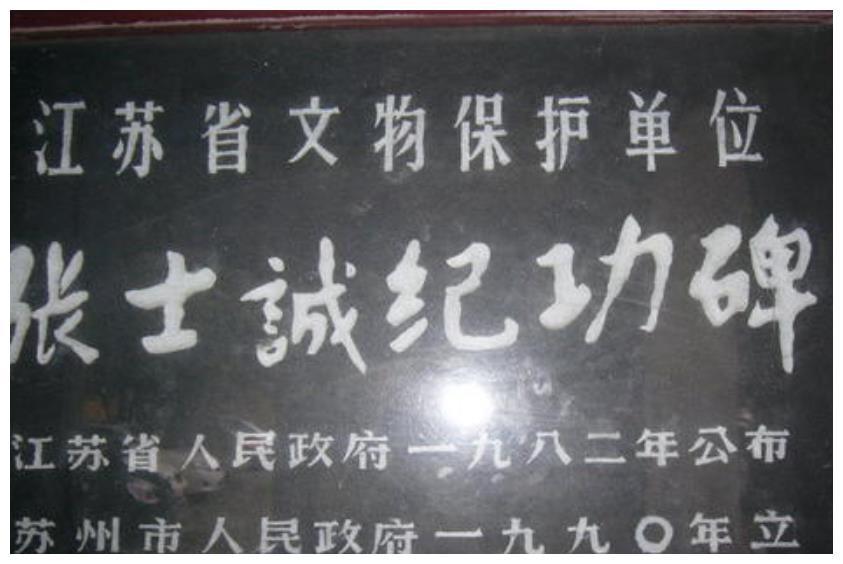 江苏省文物保护单位
张士誠纪功碑
江苏省人民政府一九八二年公布
苏州市人民政府一九九〇年立